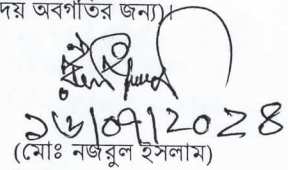 দয় অবগতির জন্য)।
১৬/০৭/২০২৪
(মোঃ নজরুল ইসলাম)